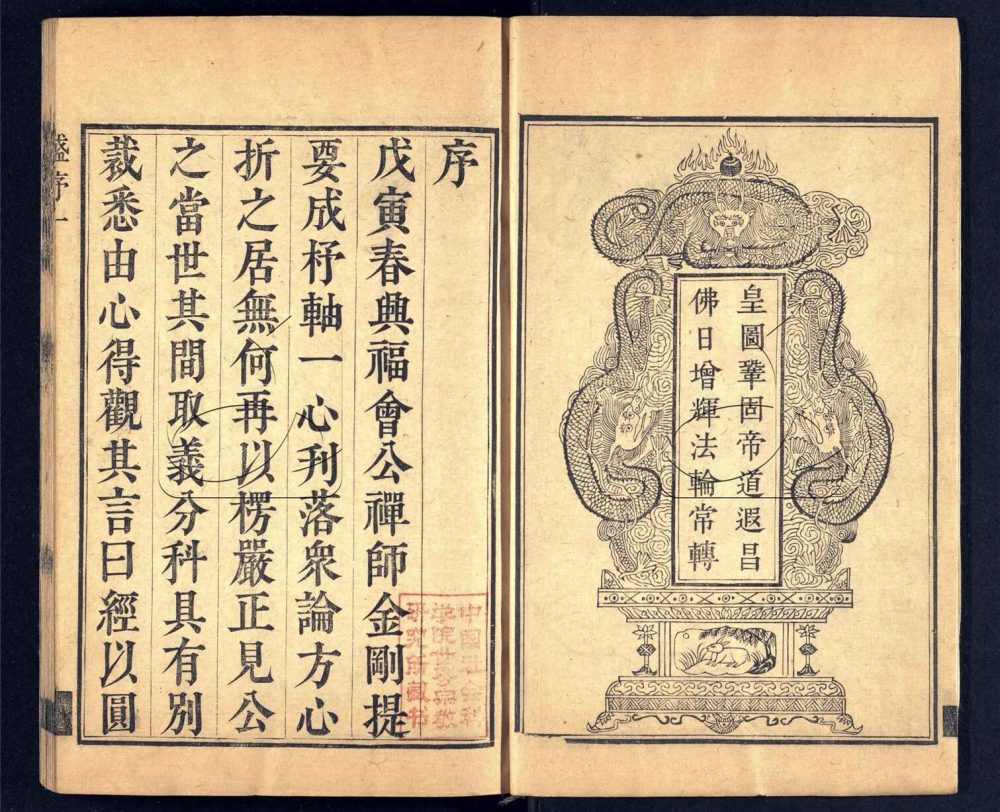 皇圖鞏固帝道遐昌
佛日增輝法輪常轉
序
戊寅春興福會公禪師金剛提
要成杼軸一心刋落衆論方心
折之居無何再以楞嚴正見公
之當世其間取義分科具有別
裁悉由心得觀其言曰經以圓
序一
中国社会科
学院世界宗教
研究所藏书